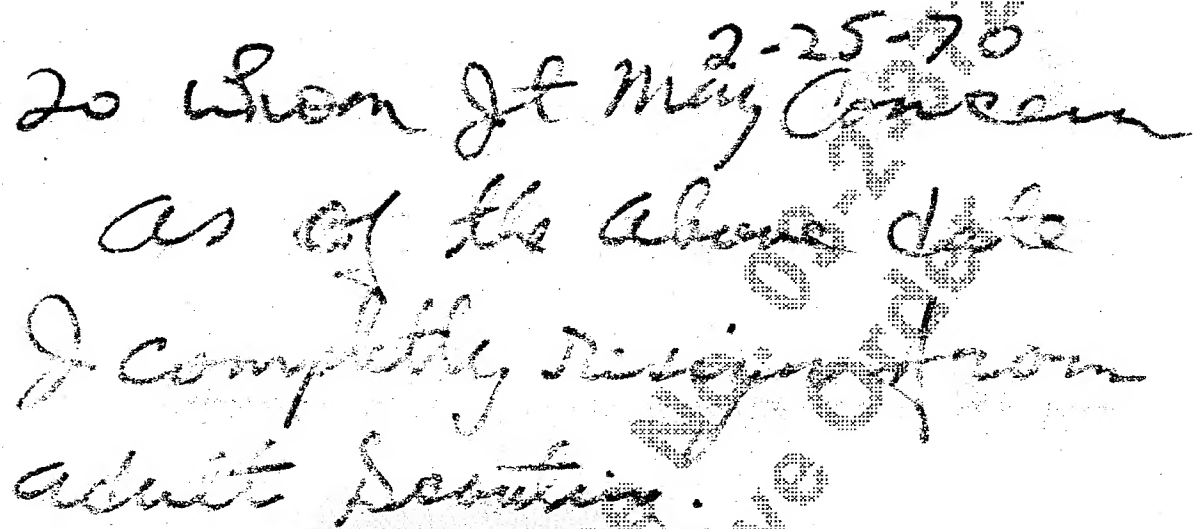 2-25-70
To Whom It May Concern
As of the above date
I completly resign from
adult Scouting.